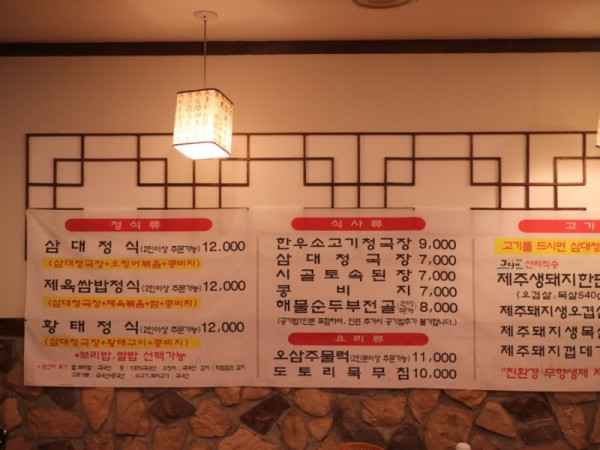 정식류
삼대정식(2인이상 주문가능) 12,000
(삼대청국장+오징어볶음+콩비지)
제육쌈밥정식(2인이상 주문가능) 12,000
(삼대청국장+제육볶음+쌈+콩비지)
황태정식(2인이상 주문가능) 12,000
(삼대청국장+황태구이+콩비지)
*보리밥,쌀밥 선택가능
식사류
한우소고기청국장 9,000
삼대청국장 7,000
시골토속된장 7,000
콩비지 7,000
해물순두부전골 8,000
요리류
오삼주물럭(2인분이상 주문가능) 11,000
도토리묵무침 10,000
고기
고기를 드시면 삼대청
산지직송
제주생돼지한판
(오겹살, 목살540g
제주돼지생오겹살
제주돼지생목살
제주돼지껍데기
"친환경 무항생제 제